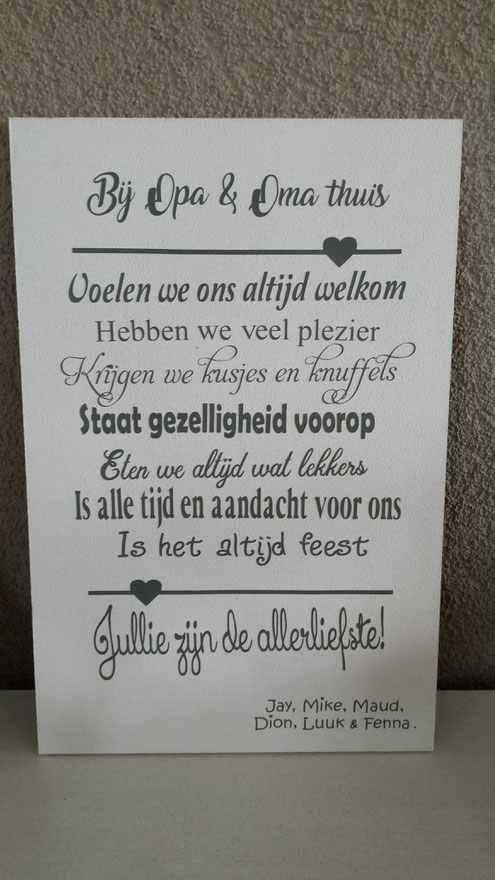 Bij Opa & Oma thuis
Voelen we ons altijd welkom
Hebben we veel plezier
Krijgen we kusjes en knuffels
Staat gezelligheid voorop
Eten we altijd wat lekkers
Is alle tijd en aandacht voor ons
Is het altijd feest
Jullie zijn de allerliefste!
Jay, Mike, Maud,
Dion, Luuk & Fenna.